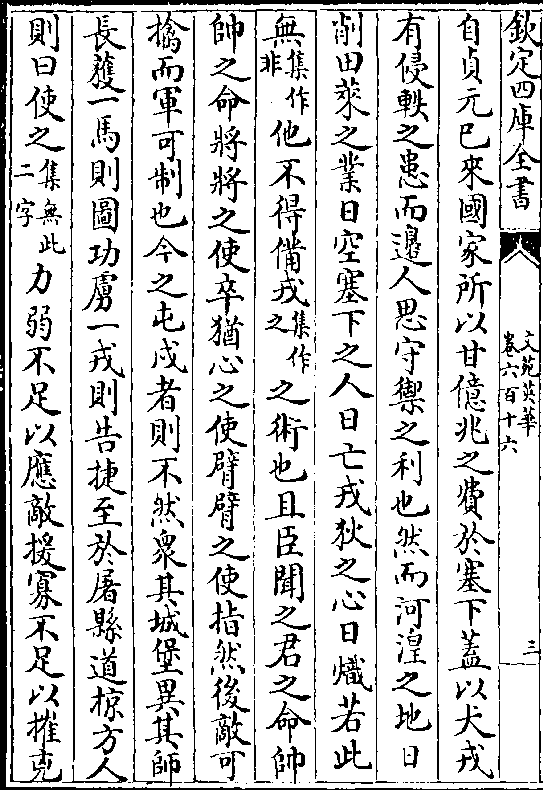 欽定四庫全書
文苑英華
卷六百十六
三
自貞元已來國家所以甘億兆之費於塞下蓋以犬戎
有侵軼之患而邊人思守禦之利也然而河湟之地日
削田萊之業日空塞下之人日亡戎狄之心日熾若此
無集作非他不得備戎集作之之術也且臣聞之君之命帥
帥之命將將之使卒猶心之使臂臂之使指然後敵可
擒而軍可制也今之屯戍者則不然衆其城堡異其師
長獲一馬則圖功虜一戎則告捷至於屠縣道掠方人
則曰使之集無此二字力弱不足以應敵援寡不足以摧克